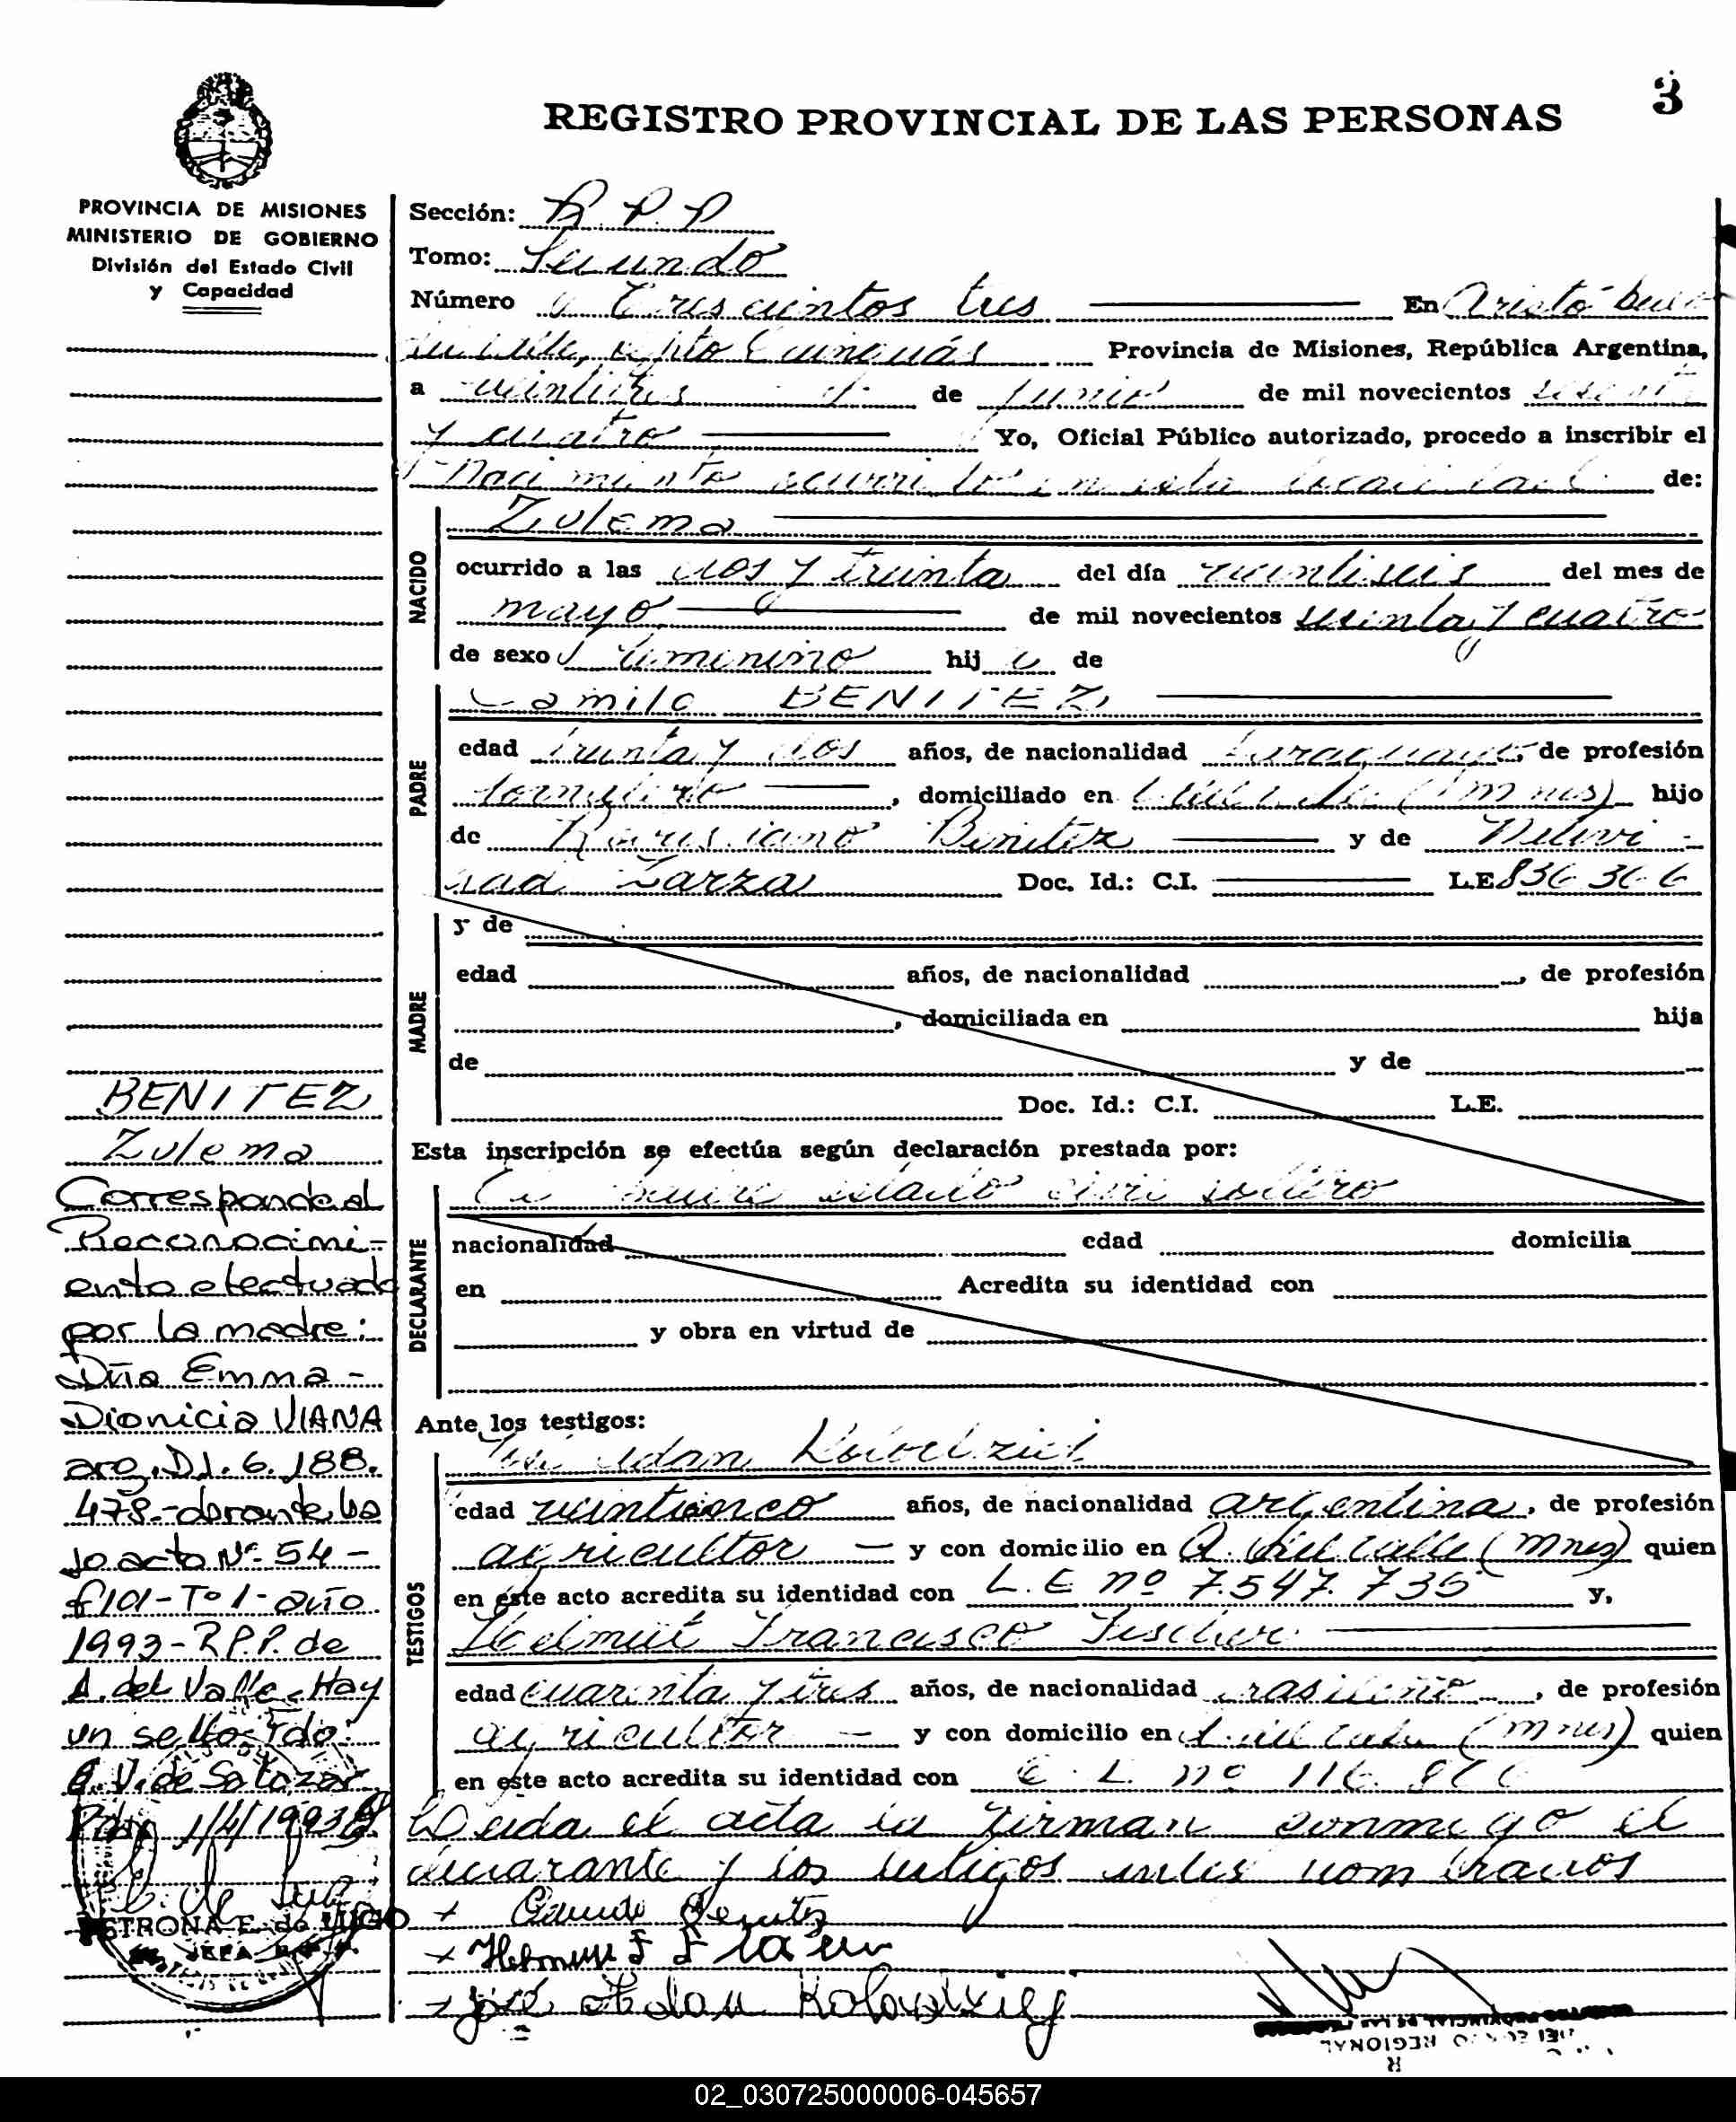 3
REGISTRO PROVINCIAL DE LAS PERSONAS
PROVINCIA DE MISIONES
MINISTERIO DE GOBIERNO
División del Estado Civil
y Capacidad
Sección: R.P.P
Tomo:
Número Trescientos tres En Aristó
Provincia de Misiones, República Argentina,
a de Junio de mil novecientos sesenta
y cuatro Yo, Oficial Público autorizado, procedo a inscribir el
Nacimiento ocurrido en esta localidad de:
NACIDO
Zulema
ocurrido a las dos y treinta del día del mes de
mayo de mil novecientos sesenta y cuatro
de sexo femenino hija de
PADRE
Camilo BENITEZ
edad treinta y dos años, de nacionalidad de profesión
, domiciliado en (Mnes) hijo
de Benitez y de
Zarza Doc. Id.: C.I. L.E 836 366
MADRE
y de
edad años, de nacionalidad , de profesión
, domiciliada en hija
de y de
Doc. Id.: C.I. L.E.
Esta inscripción se efectúa según declaración prestada por:
DECLARANTE
El padre estado civil soltero
nacionalidad edad domicilia
en Acredita su identidad con
y obra en virtud de
Ante los testigos:
TESTIGOS
José Adan
edad veinticinco años, de nacionalidad argentina, de profesión
agricultor y con domicilio en A. del Valle (Mnes) quien
en éste acto acredita su identidad con L.E nº 7.547.735 y,
Helmut Francisco Fischer
edad cuarenta y tres años, de nacionalidad brasileño, de profesión
agricultor y con domicilio en (Mnes) quien
en este acto acredita su identidad con nº 116.
Leida el acta la firman conmigo el
declarante y los testigos antes nombrados
Camilo Benitez
José Adan
BENITEZ
Zulema
Corresponde al
Reconocimi-
ento efectuado
por la madre:
Dña Emma -
Dionicia VIANA
arg. D.I. 6.188.
478.-
acta Nº 54 -
fº101-Tº1-año
1993-R.P.P. de
A. del Valle-Hay
un sello-Fdo:
de Salazar
1/4/1993
PETRONA E. de LUGO
JEFA
REGIONAL
02_030725000006-045657